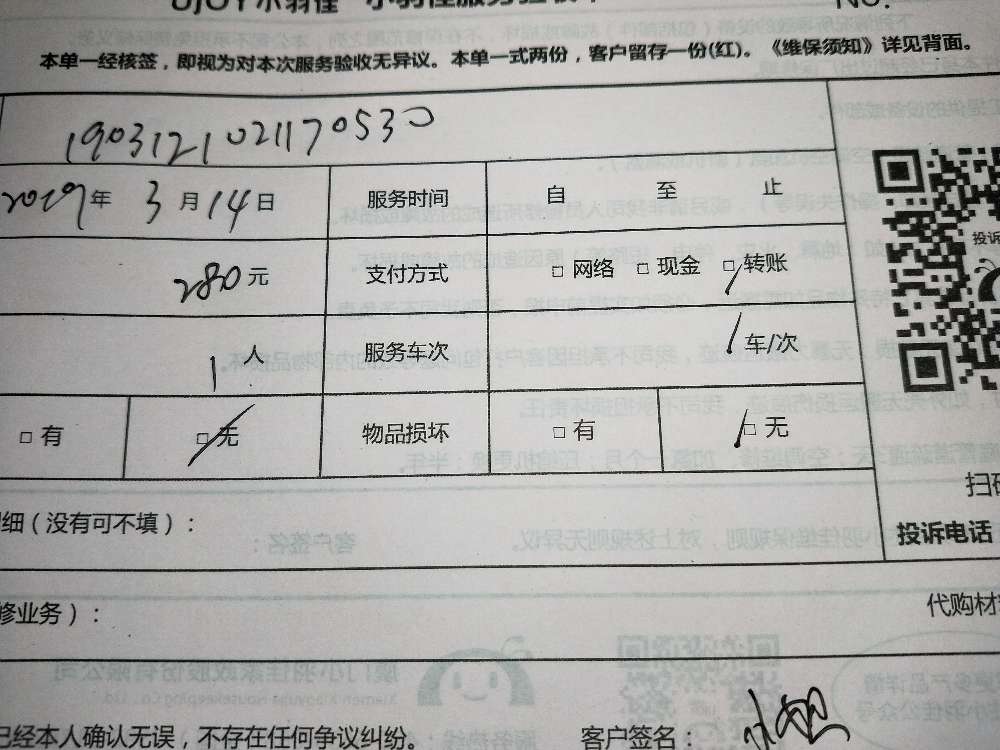 小羽佳
NO.
本单一经核签，即视为对本次服务验收无异议。本单一式两份，客户留存一份(红)。《维保须知》详见背面。
1903121021170530
2019年 3月14日 服务时间 自 至 止
280元 支付方式 □ 网络 □ 现金 □ 转账
投诉
1人 服务车次 1车/次
□ 有 □ 无 物品损坏 □ 有 □ 无
扫码
细（没有可不填）：
投诉电话
修业务）： 代购材
已经本人确认无误，不存在任何争议纠纷。 客户签名：